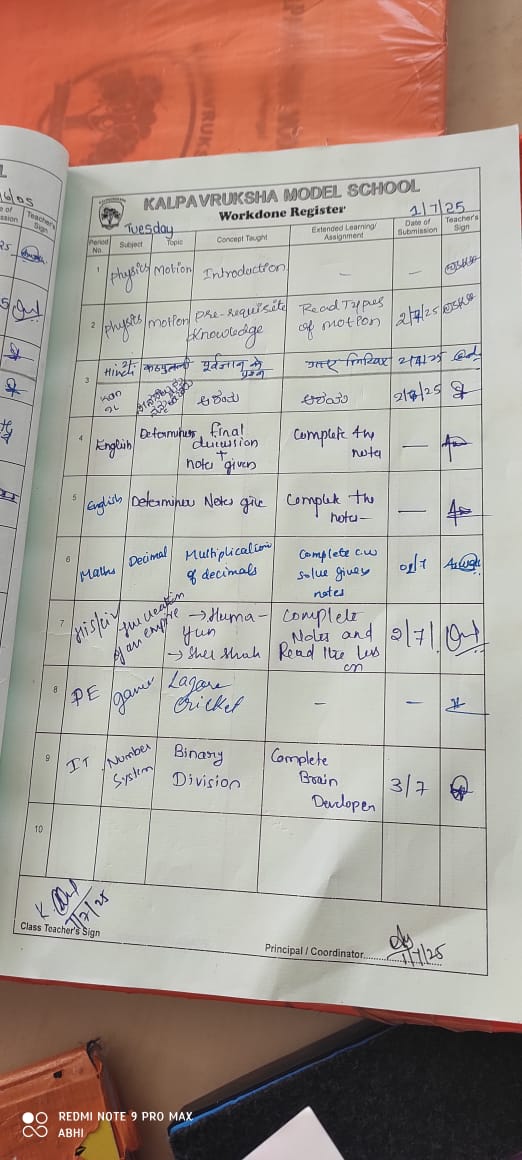 KALPAVRUKSHA MODEL SCHOOL
Workdone Register
Tuesday
1/7/25
Period No. Subject Topic Concept Taught Extended Learning/ Assignment Date of Submission Teacher's Sign
1 Physics Motion Introduction — —
2 Physics motion Pre-requisite Knowledge Read Types of motion 2/7/25
3 हिन्दी कठपुतली पूर्वज्ञान के प्रश्न 2/7/25
Kan 2L 2/7/25
4 English Determiners final discussion + notes given Complete the notes —
5 English Determiners Notes give Complete the notes —
6 Maths Decimal Multiplication of decimals Complete cw solve given notes 02/7
7 His/civ the creation of an empire → Huma- yun → Sher Shah Complete Notes and Read the less on 2/7/
8 PE games Lagore Cricket — —
9 IT Number System Binary Division Complete Brain Developer 3/7
10
1/7/25
Class Teacher's Sign
Principal / Coordinator
1/7/25
Teacher's Sign
REDMI NOTE 9 PRO MAX
ABHI